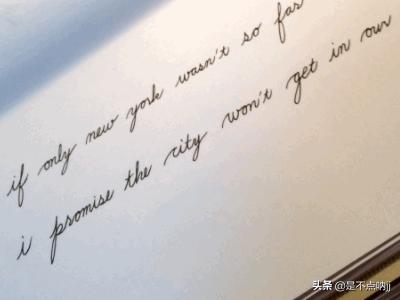 if only new york wasn't so far
i promise the city won't get in our
头条 @是不点呐jj